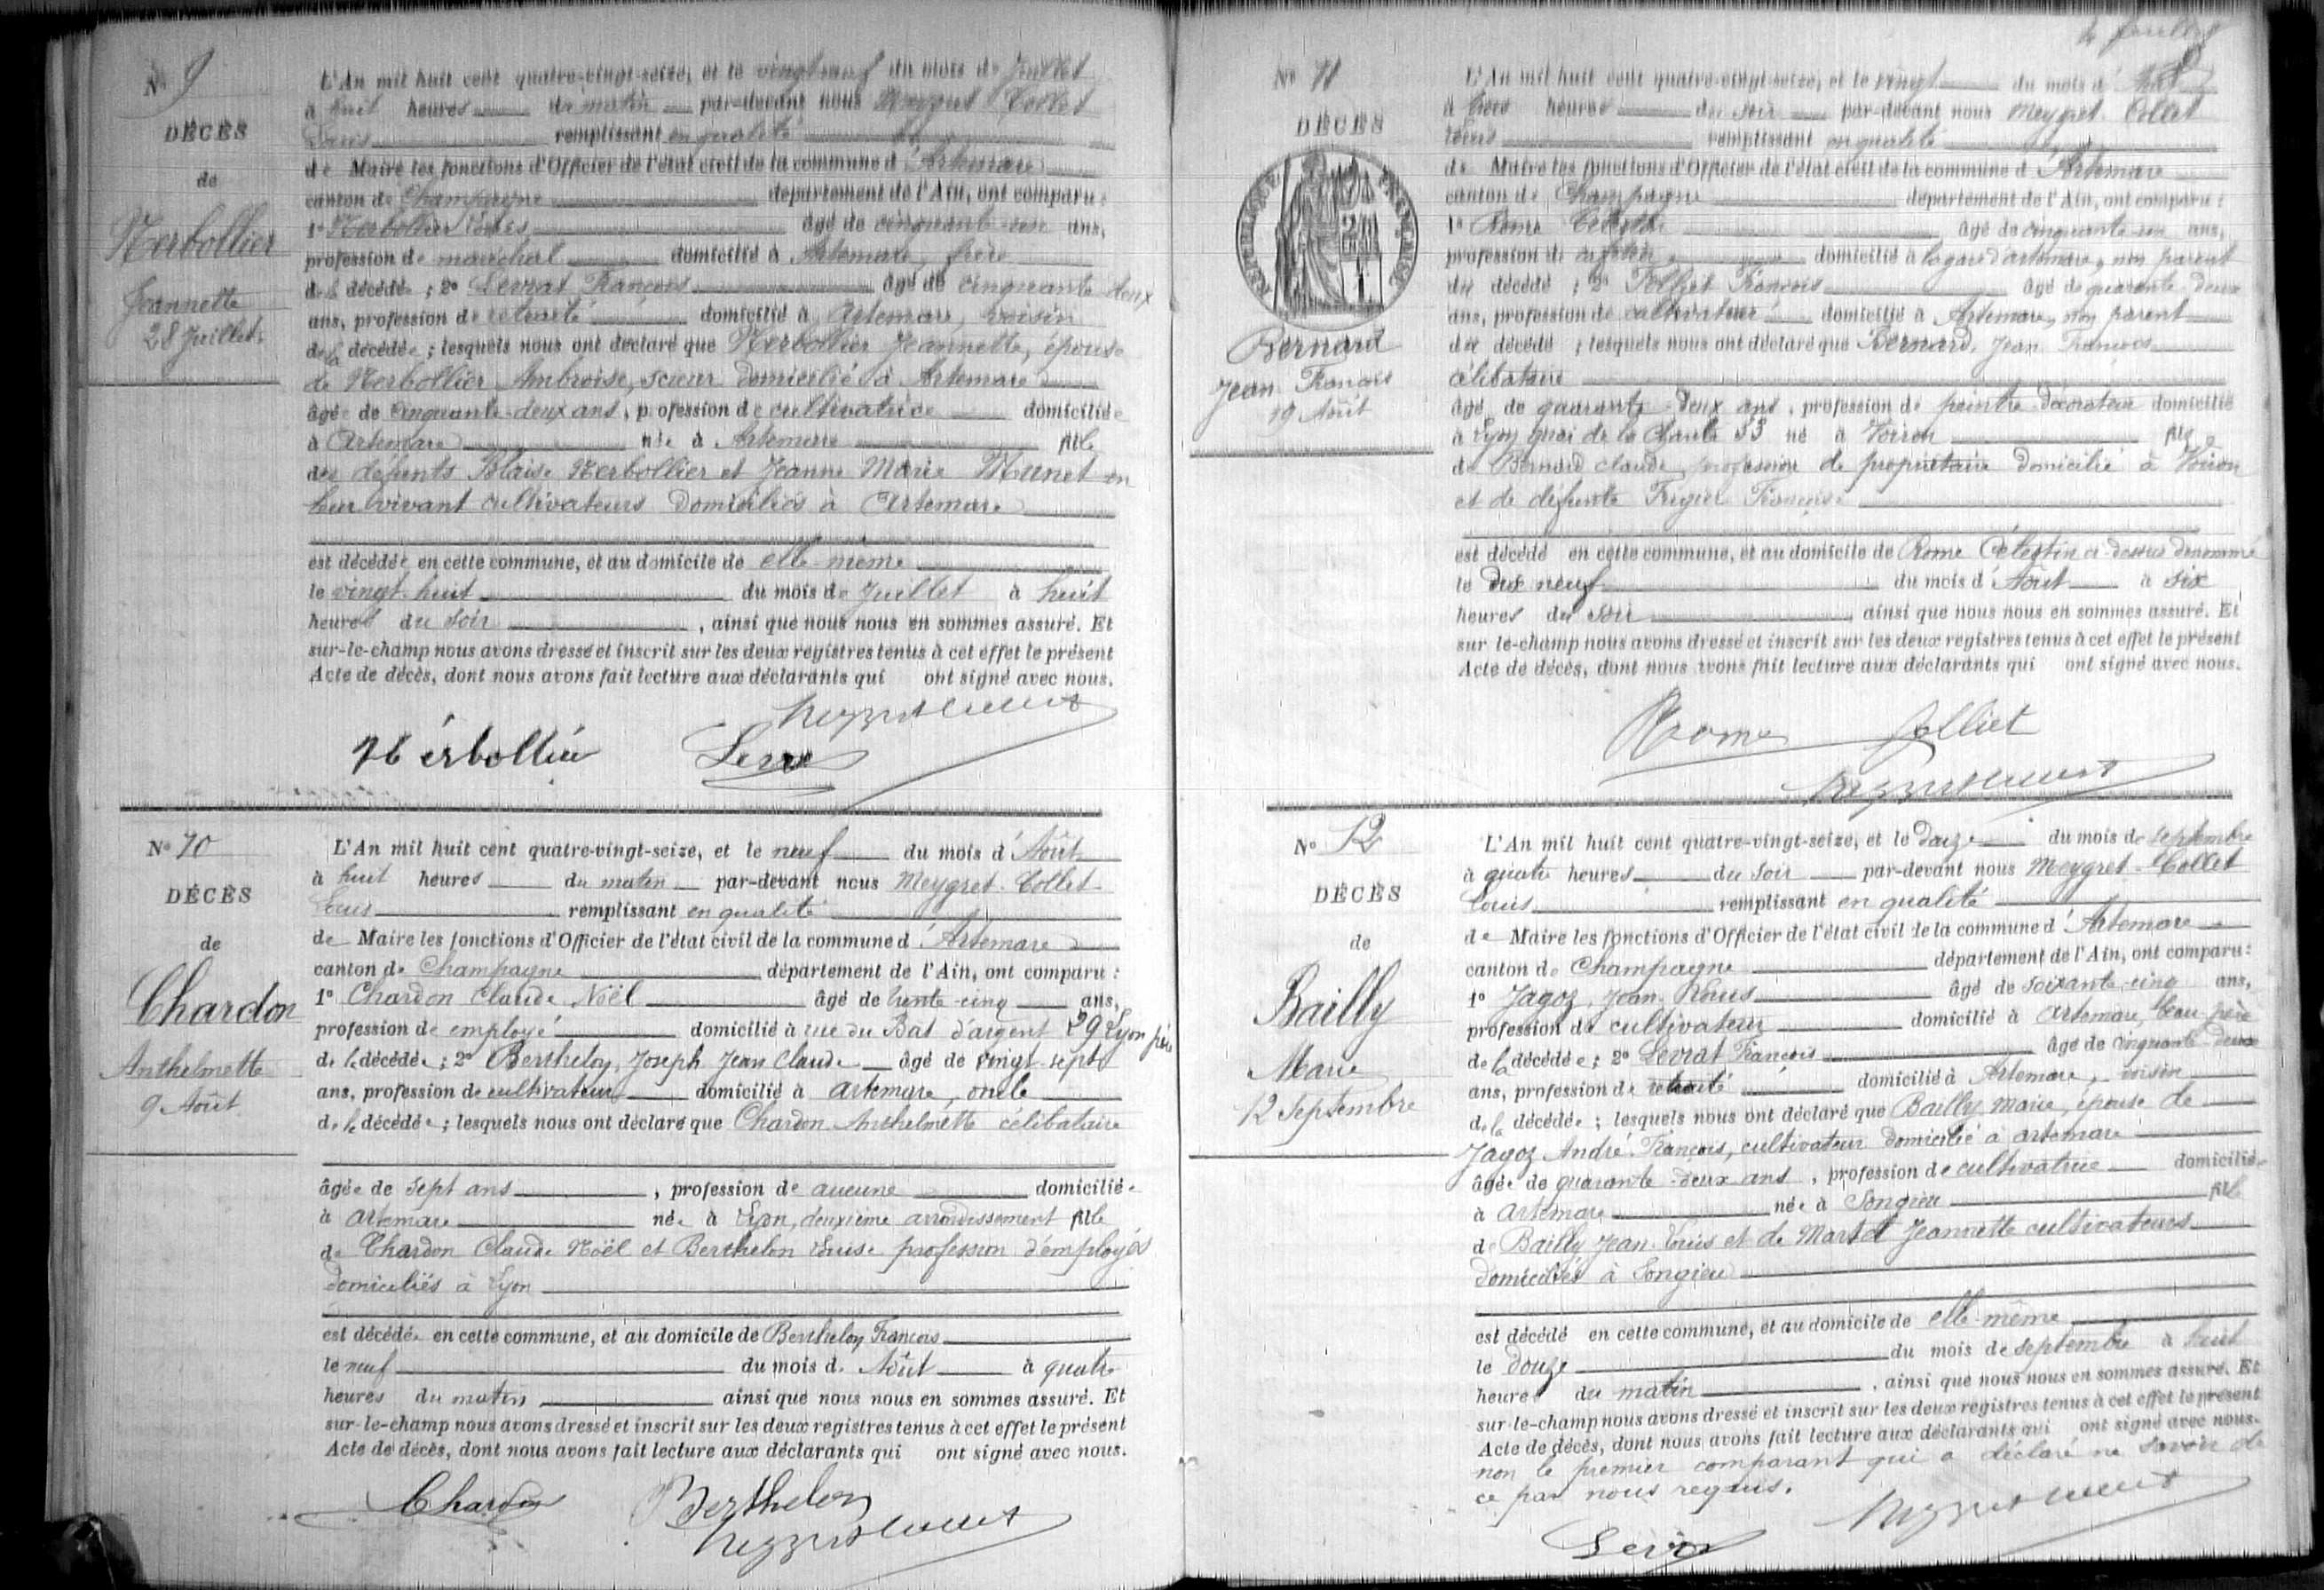 N° 9
DÉCÈS
de
Herbollier
Jeannette
28 Juillet
L'An mil huit cent quatre-vingt-seize, et le vingt neuf du mois de Juillet
à huit heures du matin par-devant nous Meygret Collet
Louis remplissant en qualité
de Maire les fonctions d'Officier de l'état civil de la commune d'Artemare
canton de Champagne département de l'Ain, ont comparu :
1° Herbollier âgé de cinquante-un ans,
profession de maréchal domicilié à Artemare, frère
de la décédée ; 2° Levrat François âgé de cinquante deux
ans, profession de retraité domicilié à Artemare, voisin
de la décédée ; lesquels nous ont déclaré que Herbollier Jeannette, épouse
de Herbollier Ambroise, scieur domicilié à Artemare
âgée de cinquante-deux ans, profession de cultivatrice domiciliée
à Artemare née à Artemare fille
des défunts Blaise Herbollier et Jeanne Marie Munet en
leur vivant cultivateurs domiciliés à Artemare
est décédée en cette commune, et au domicile de elle-même
le vingt huit du mois de Juillet à huit
heures du soir, ainsi que nous nous en sommes assuré. Et
sur-le-champ nous avons dressé et inscrit sur les deux registres tenus à cet effet le présent
Acte de décès, dont nous avons fait lecture aux déclarants qui ont signé avec nous.
Herbollier
N° 10
DÉCÈS
de
Chardon
Anthelmette
9 Août
L'An mil huit cent quatre-vingt-seize, et le neuf du mois d'Août
à huit heures du matin par-devant nous Meygret-Collet
Louis remplissant en qualité
de Maire les fonctions d'Officier de l'état civil de la commune d'Artemare
canton de Champagne département de l'Ain, ont comparu :
1° Chardon Claude Noël âgé de trente-cinq ans,
profession de employé domicilié à rue du Bat d'argent 29 Lyon père
de la décédée ; 2° Berthelon, Joseph Jean Claude âgé de vingt-sept
ans, profession de cultivateur domicilié à Artemare, oncle
de la décédée ; lesquels nous ont déclaré que Chardon Anthelmette célibataire
âgée de sept ans, profession de aucune domiciliée
à Artemare née à Lyon, deuxième arrondissement fille
de Chardon Claude Noël et Berthelon Louise profession d'employés
domiciliés à Lyon
est décédée en cette commune, et au domicile de Berthelon François
le neuf du mois d'Août à quatre
heures du matin ainsi que nous nous en sommes assuré. Et
sur-le-champ nous avons dressé et inscrit sur les deux registres tenus à cet effet le présent
Acte de décès, dont nous avons fait lecture aux déclarants qui ont signé avec nous.
Chardon Berthelon
N° 11
DÉCÈS
RÉPUBLIQUE FRANÇAISE
Bernard
Jean François
19 Août
L'An mil huit cent quatre-vingt-seize, et le vingt du mois d'Août
à trois heures du soir par-devant nous Meygret-Collet
Louis remplissant en qualité
de Maire les fonctions d'Officier de l'état civil de la commune d'Artemare
canton de Champagne département de l'Ain, ont comparu :
1° Rome Célestin âgé de cinquante-un ans,
profession de cafetier domicilié à la gare d'artemare, non parent
du décédé ; 2° Jolliet François âgé de quarante-deux
ans, profession de cultivateur domicilié à Artemare, non parent
du décédé ; lesquels nous ont déclaré que Bernard, Jean François
célibataire
âgé de quarante-deux ans, profession de peintre décorateur domicilié
à Lyon quai de la Charité 33 né à Voiron fils
de Bernard Claude, profession de propriétaire domicilié à Voiron
et de défunte Françoise
est décédé en cette commune, et au domicile de Rome Célestin ci-dessus dénommé
le dix neuf du mois d'Août à six
heures du soir, ainsi que nous nous en sommes assuré. Et
sur-le-champ nous avons dressé et inscrit sur les deux registres tenus à cet effet le présent
Acte de décès, dont nous avons fait lecture aux déclarants qui ont signé avec nous.
Rome Jolliet
N° 12
DÉCÈS
de
Bailly
Marie
12 Septembre
L'An mil huit cent quatre-vingt-seize, et le douze du mois de septembre
à quatre heures du soir par-devant nous Meygret-Collet
Louis remplissant en qualité
de Maire les fonctions d'Officier de l'état civil de la commune d'Artemare
canton de Champagne département de l'Ain, ont comparu :
1° Jagoz, Jean-Louis âgé de soixante-cinq ans,
profession de cultivateur domicilié à Artemare, beau père
de la décédée ; 2° Levrat François âgé de cinquante-deux
ans, profession de retraité domicilié à Artemare, voisin
de la décédée ; lesquels nous ont déclaré que Bailly, Marie, épouse de
Jagoz André François, cultivateur domicilié à Artemare
âgée de quarante-deux ans, profession de cultivatrice domiciliée
à Artemare née à Songieu fille
de Bailly Jean-Louis et de Martel Jeannette cultivateurs
domiciliés à Songieu
est décédé en cette commune, et au domicile de elle-même
le douze du mois de septembre à huit
heures du matin, ainsi que nous nous en sommes assuré. Et
sur-le-champ nous avons dressé et inscrit sur les deux registres tenus à cet effet le présent
Acte de décès, dont nous avons fait lecture aux déclarants qui ont signé avec nous.
non le premier comparant qui a déclaré ne savoir de
ce par nous requis.